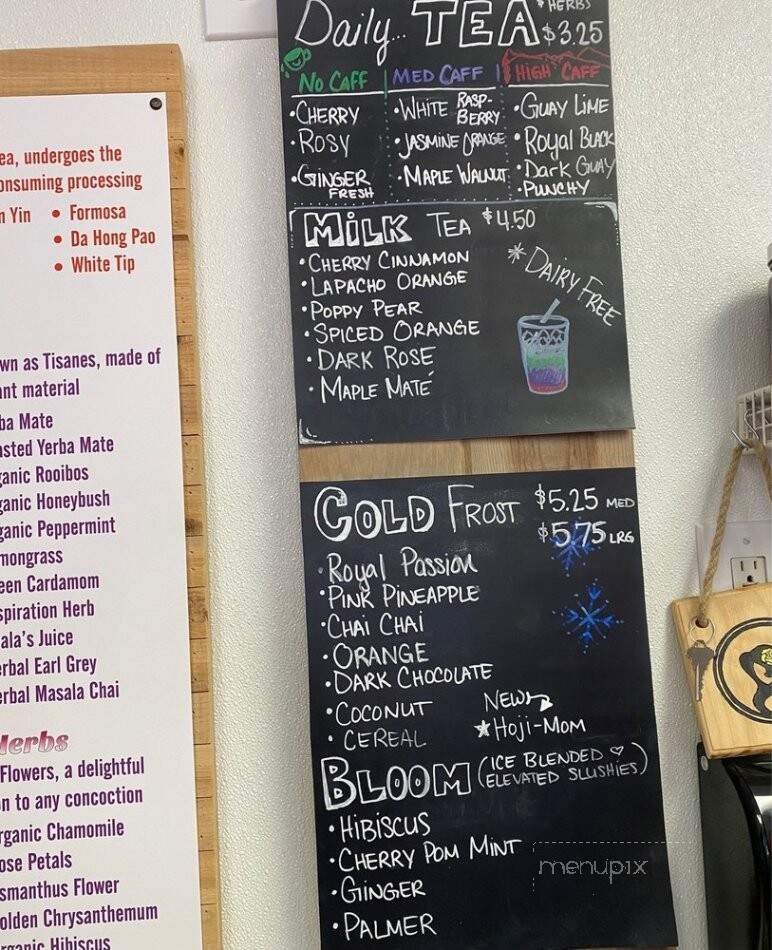 ea, undergoes the
onsuming processing
n Yin • Formosa
• Da Hong Pao
• White Tip
wn as Tisanes, made of
ant material
ba Mate
asted Yerba Mate
ganic Rooibos
ganic Honeybush
ganic Peppermint
mongrass
een Cardamom
spiration Herb
ala's Juice
erbal Earl Grey
erbal Masala Chai
Herbs
Flowers, a delightful
n to any concoction
rganic Chamomile
ose Petals
smanthus Flower
olden Chrysanthemum
rganic Hibiscus
Daily... TEA * HERBS
$3.25
NO CAFF | MED CAFF | HIGH CAFF
• CHERRY
• ROSY
• GINGER
FRESH
• WHITE RASP-
BERRY
• JASMINE ORANGE
• MAPLE WALNUT
• GUAY LIME
• Royal BLACK
• Dark GUAY
• PUNCHY
MILK TEA $4.50
* DAIRY FREE
• CHERRY CINNAMON
• LAPACHO ORANGE
• POPPY PEAR
• SPICED ORANGE
• DARK ROSE
• MAPLE MATÉ
COLD FROST $5.25 MED
$5.75 LRG
• Royal Passion
• PINK PINEAPPLE
• CHAI CHAI
• ORANGE
• DARK CHOCOLATE
• COCONUT
• CEREAL
NEW
★ HOJI-MOM
BLOOM (ICE BLENDED ♡
ELEVATED SLUSHIES)
• HIBISCUS
• CHERRY POM MINT
• GINGER
• PALMER
menupix